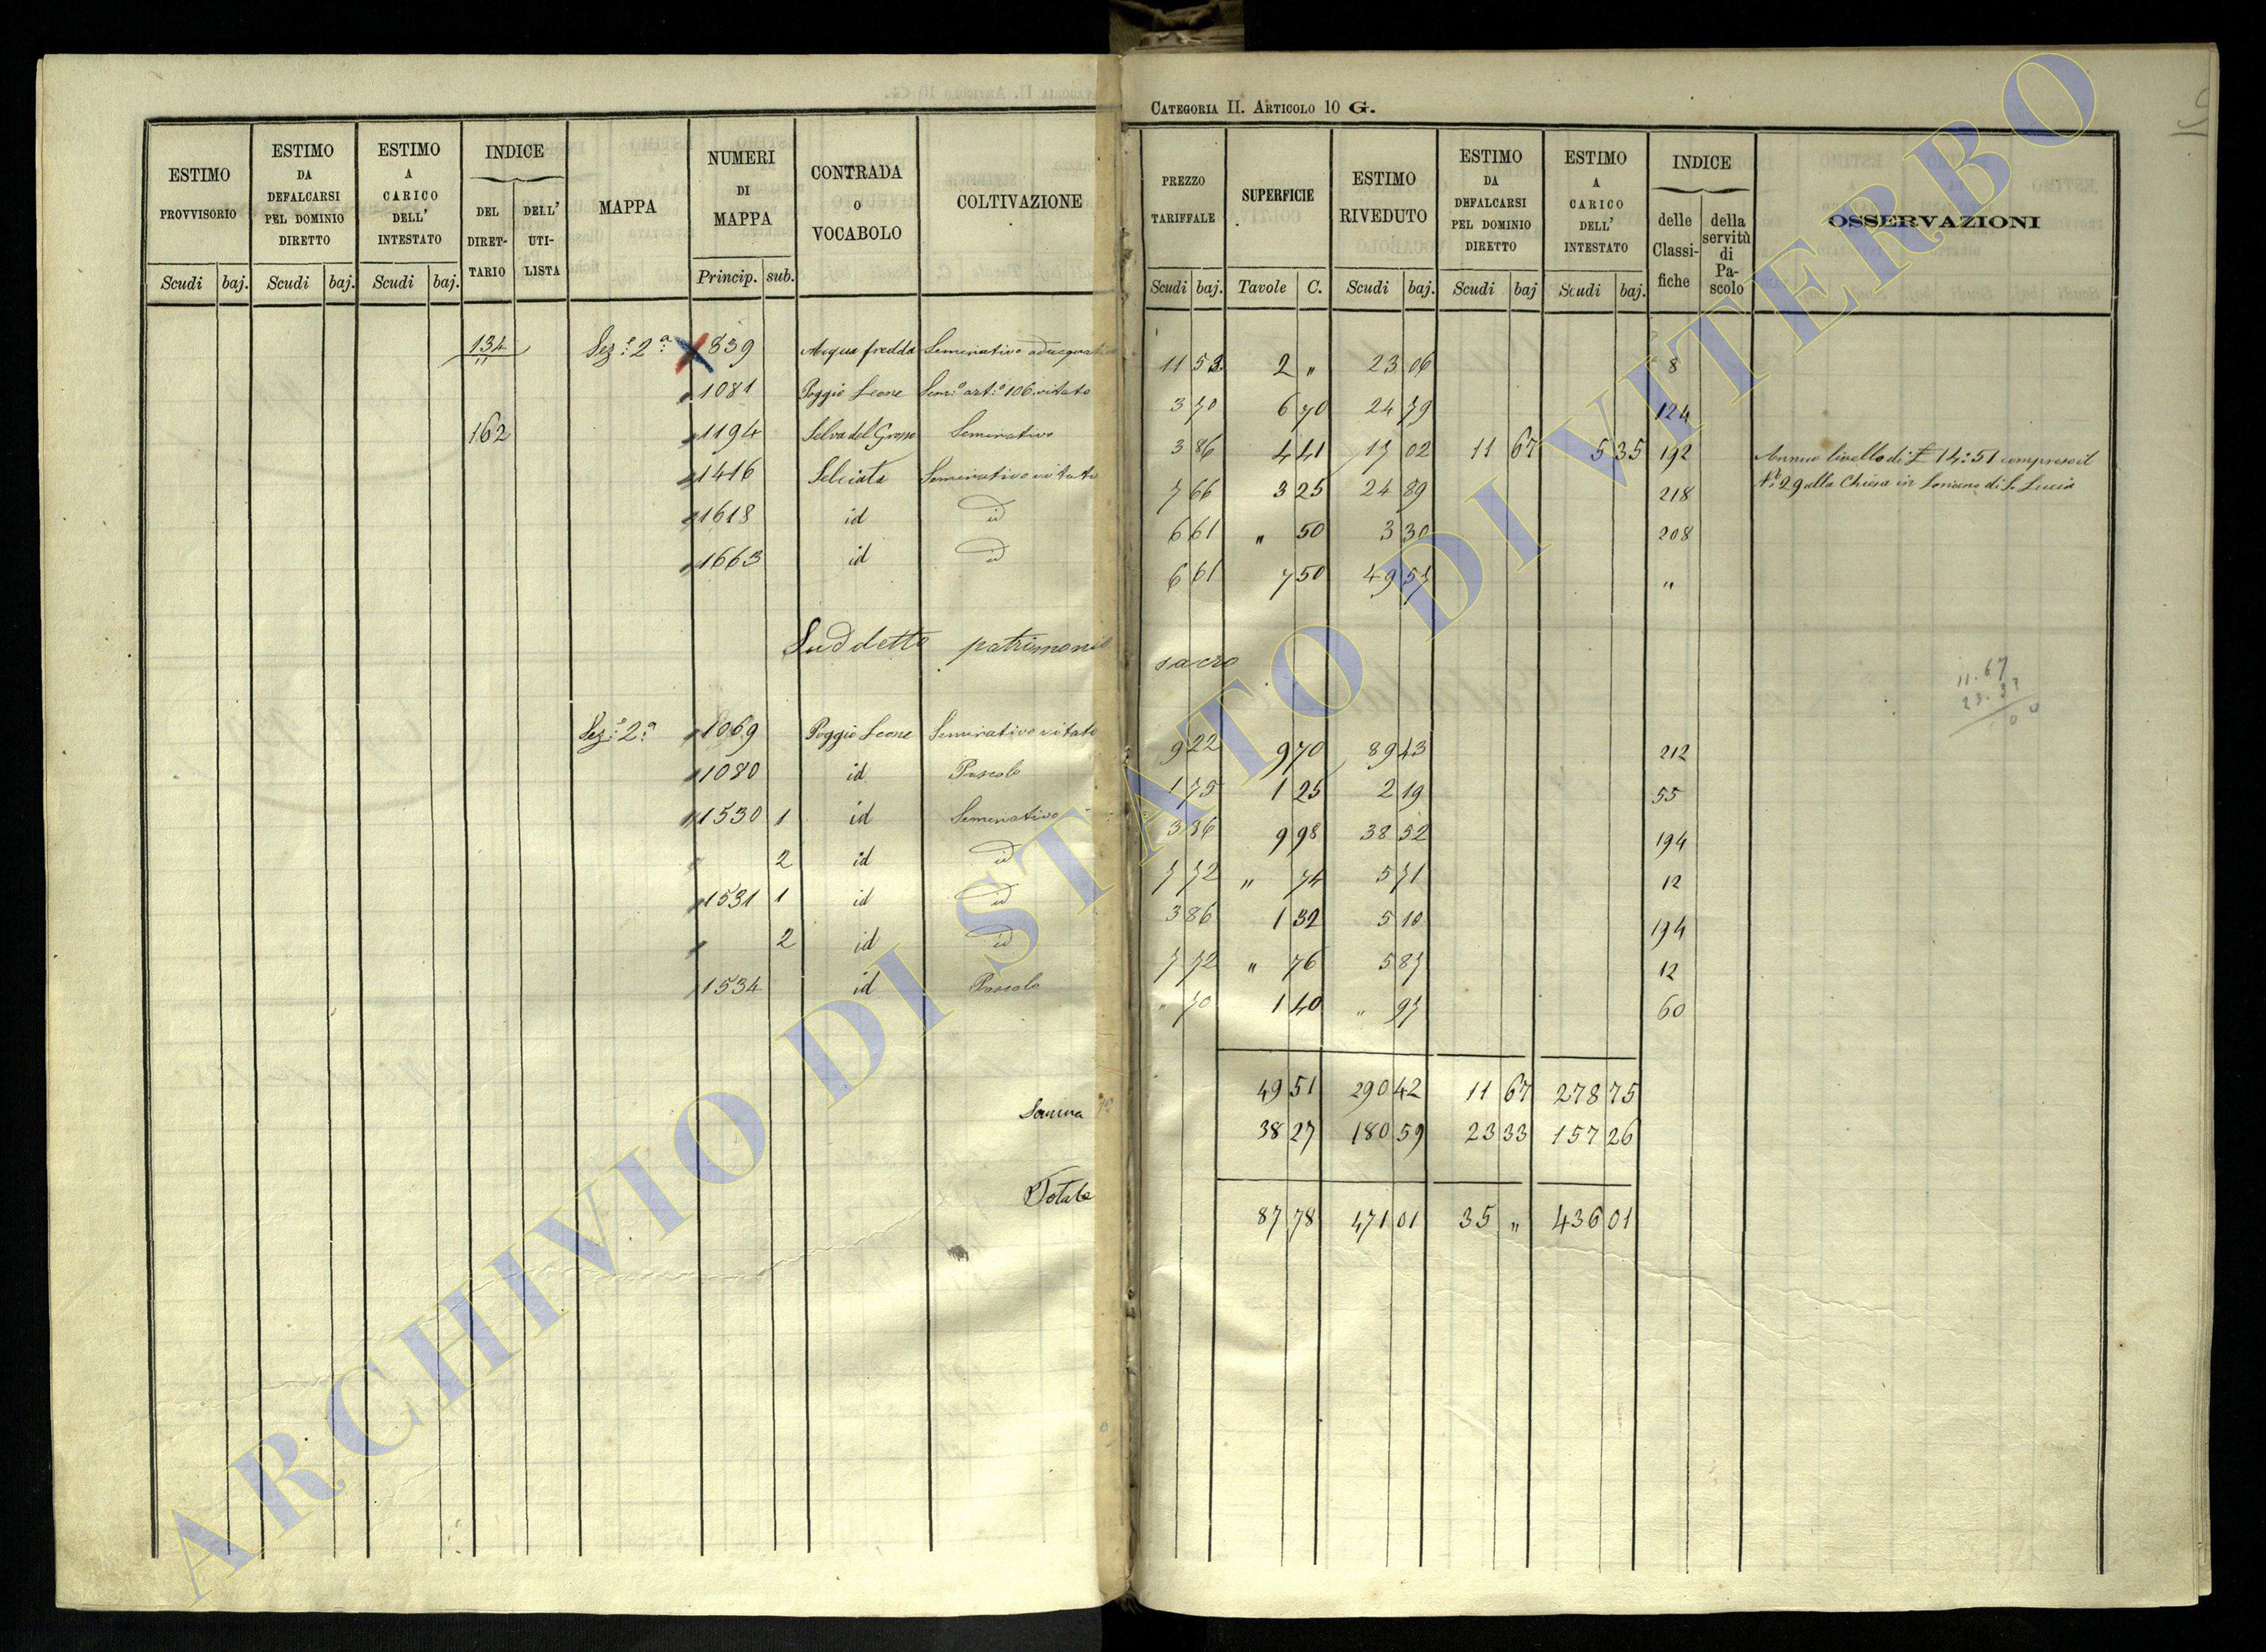 CATEGORIA II. ARTICOLO 10 G.
ESTIMO PROVVISORIO
ESTIMO DA DEFALCARSI PEL DOMINIO DIRETTO
ESTIMO A CARICO DELL' INTESTATO
INDICE
DEL DIRET-TARIO
DELL' UTI-LISTA
MAPPA
NUMERI DI MAPPA
CONTRADA O VOCABOLO
COLTIVAZIONE
PREZZO TARIFFALE
SUPERFICIE
ESTIMO RIVEDUTO
ESTIMO DA DEFALCARSI PEL DOMINIO DIRETTO
ESTIMO A CARICO DELL' INTESTATO
INDICE
delle Classi-fiche
della servitù di Pa-scolo
OSSERVAZIONI
Scudi baj. Scudi baj. Scudi baj. Princip. sub. Scudi baj. Tavole C. Scudi baj. Scudi baj Scudi baj.
134 Sez:e 2a 839 Acqua fredda Seminativo 11 53 2 " 23 06 8
1081 Poggio Leone Sem:o art:o 106 vitato 3 70 6 70 24 79 124
162 1194 Selva del Grosso Seminativo 3 86 4 41 17 02 11 67 5 35 192 Annuo livello di £ 14:51 compreso il
No: 29 alla Chiesa in Soriano di S. Lucia
1416 Selciata Seminativo vitato 7 66 3 25 24 89 218
1618 id id 6 61 " 50 3 30 208
1663 id id 6 61 7 50 49 57 "
Suddetto patrimonio sacro
11.67
23.33
0 0
Sez:e 2a 1069 Poggio Leone Seminativo vitato 9 22 9 70 89 43 212
1080 id Pascolo 1 75 1 25 2 19 55
1530 1 id Seminativo 3 86 9 98 38 52 194
2 id id 7 72 " 74 5 71 12
1531 1 id id 3 86 1 32 5 10 194
2 id id 7 72 " 76 5 87 12
1534 id Pascolo " 70 1 40 " 97 60
49 51 290 42 11 67 278 75
Somma 38 27 180 59 23 33 157 26
Totale 87 78 471 01 35 " 436 01
ARCHIVIO DI STATO DI VITERBO